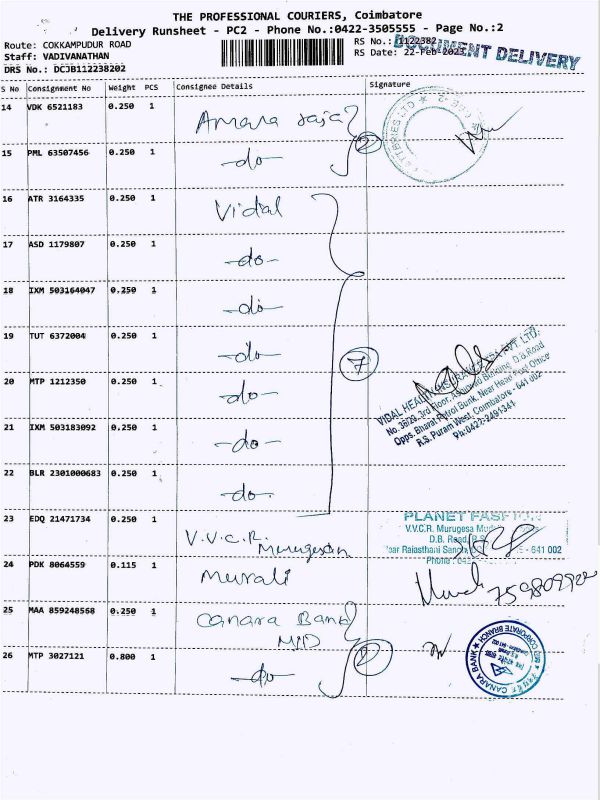 THE PROFESSIONAL COURIERS, Coimbatore
Delivery Runsheet - PC2 - Phone No.:0422-3505555 - Page No.:2
Route: COKKAMPUDUR ROAD
RS No.: 1122382
DOCUMENT DELIVERY
Staff: VADIVANATHAN
RS Date: 22-Feb-2023
DRS No.: DCJB112238202
S No Consignment No Weight PCS Consignee Details Signature
14 VDK 6521183 0.250 1 Amara raja
15 PML 63507456 0.250 1 -do- 2
16 ATR 3164335 0.250 1 Vidal
17 ASD 1179807 0.250 1 -do-
18 IXM 503164047 0.250 1 -do-
19 TUT 6372004 0.250 1 -do- 7
20 MTP 1212350 0.250 1 -do-
21 IXM 503183092 0.250 1 -do-
22 BLR 2301000683 0.250 1 -do-
VIDAL HEALTH INSURANCE PVT. LTD.
No. 3rd Floor, Building, D.B.Road
Opps. Bharat Petrol Bunk, Near Head Post Office
R.S. Puram West, Coimbatore - 641 002
Ph:0422-2491341
23 EDQ 21471734 0.250 1 V.V.C.R. Murugesan
PLANET FASHION
V.V.C.R. Murugesa
D.B. Road, R.S.
Near Rajasthani Sangh - 641 002
Phone : 042
24 PDK 8064559 0.115 1 Murali
25 MAA 859248568 0.250 1 Canara Bank
MID
26 MTP 3027121 0.800 1 -do- 2
CANARA BANK
CORPORATE BRANCH